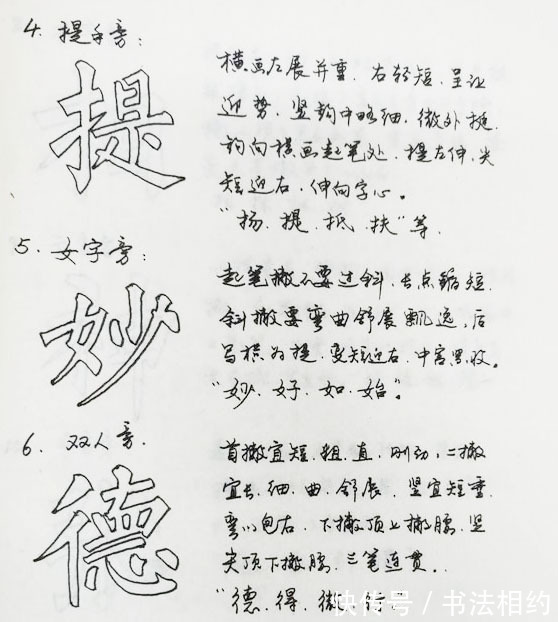 4. 提手旁:
提
横画左展并重.右轻短.呈让
迎势.竖钩中略细.微外挺.
钩向横画起笔处.提左伸.尖
短迎右.伸向字心。
"扬.提.抵.扶"等.
5. 女字旁:
妙
起笔撇不要过斜.长点缩短.
斜撇要弯曲舒展飘逸,后
写横为提.变短迎右.中宫紧收。
"妙.好.如.始"。
6. 双人旁.
德
首撇宜短.粗.直.刚劲;二撇
宜长.细.曲.舒展.竖宜短重.
弯以包右.下撇顶上撇腰.竖
尖顶下撇腰.三笔连贯..
"德.得.微.行"
快传号 / 书法相约